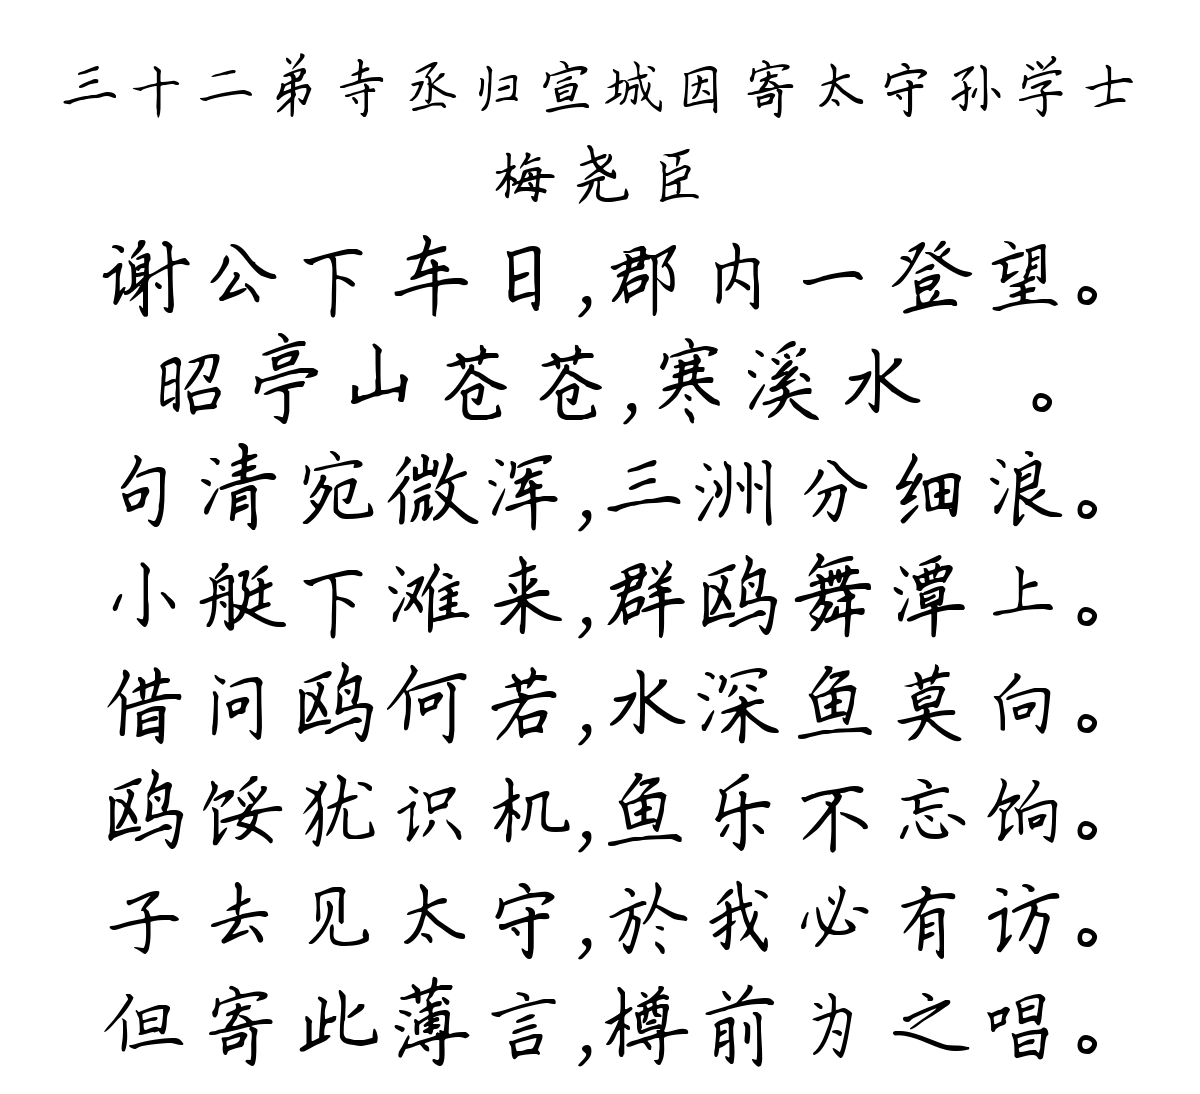 三十二弟寺丞归宣城因寄太守孙学士
梅尧臣
谢公下车日,郡内一登望。
昭亭山苍苍,寒溪水 。
句清宛微浑,三洲分细浪。
小艇下滩来,群鸥舞潭上。
借问鸥何若,水深鱼莫向。
鸥馁犹识机,鱼乐不忘饷。
子去见太守,於我必有访。
但寄此薄言,樽前为之唱。